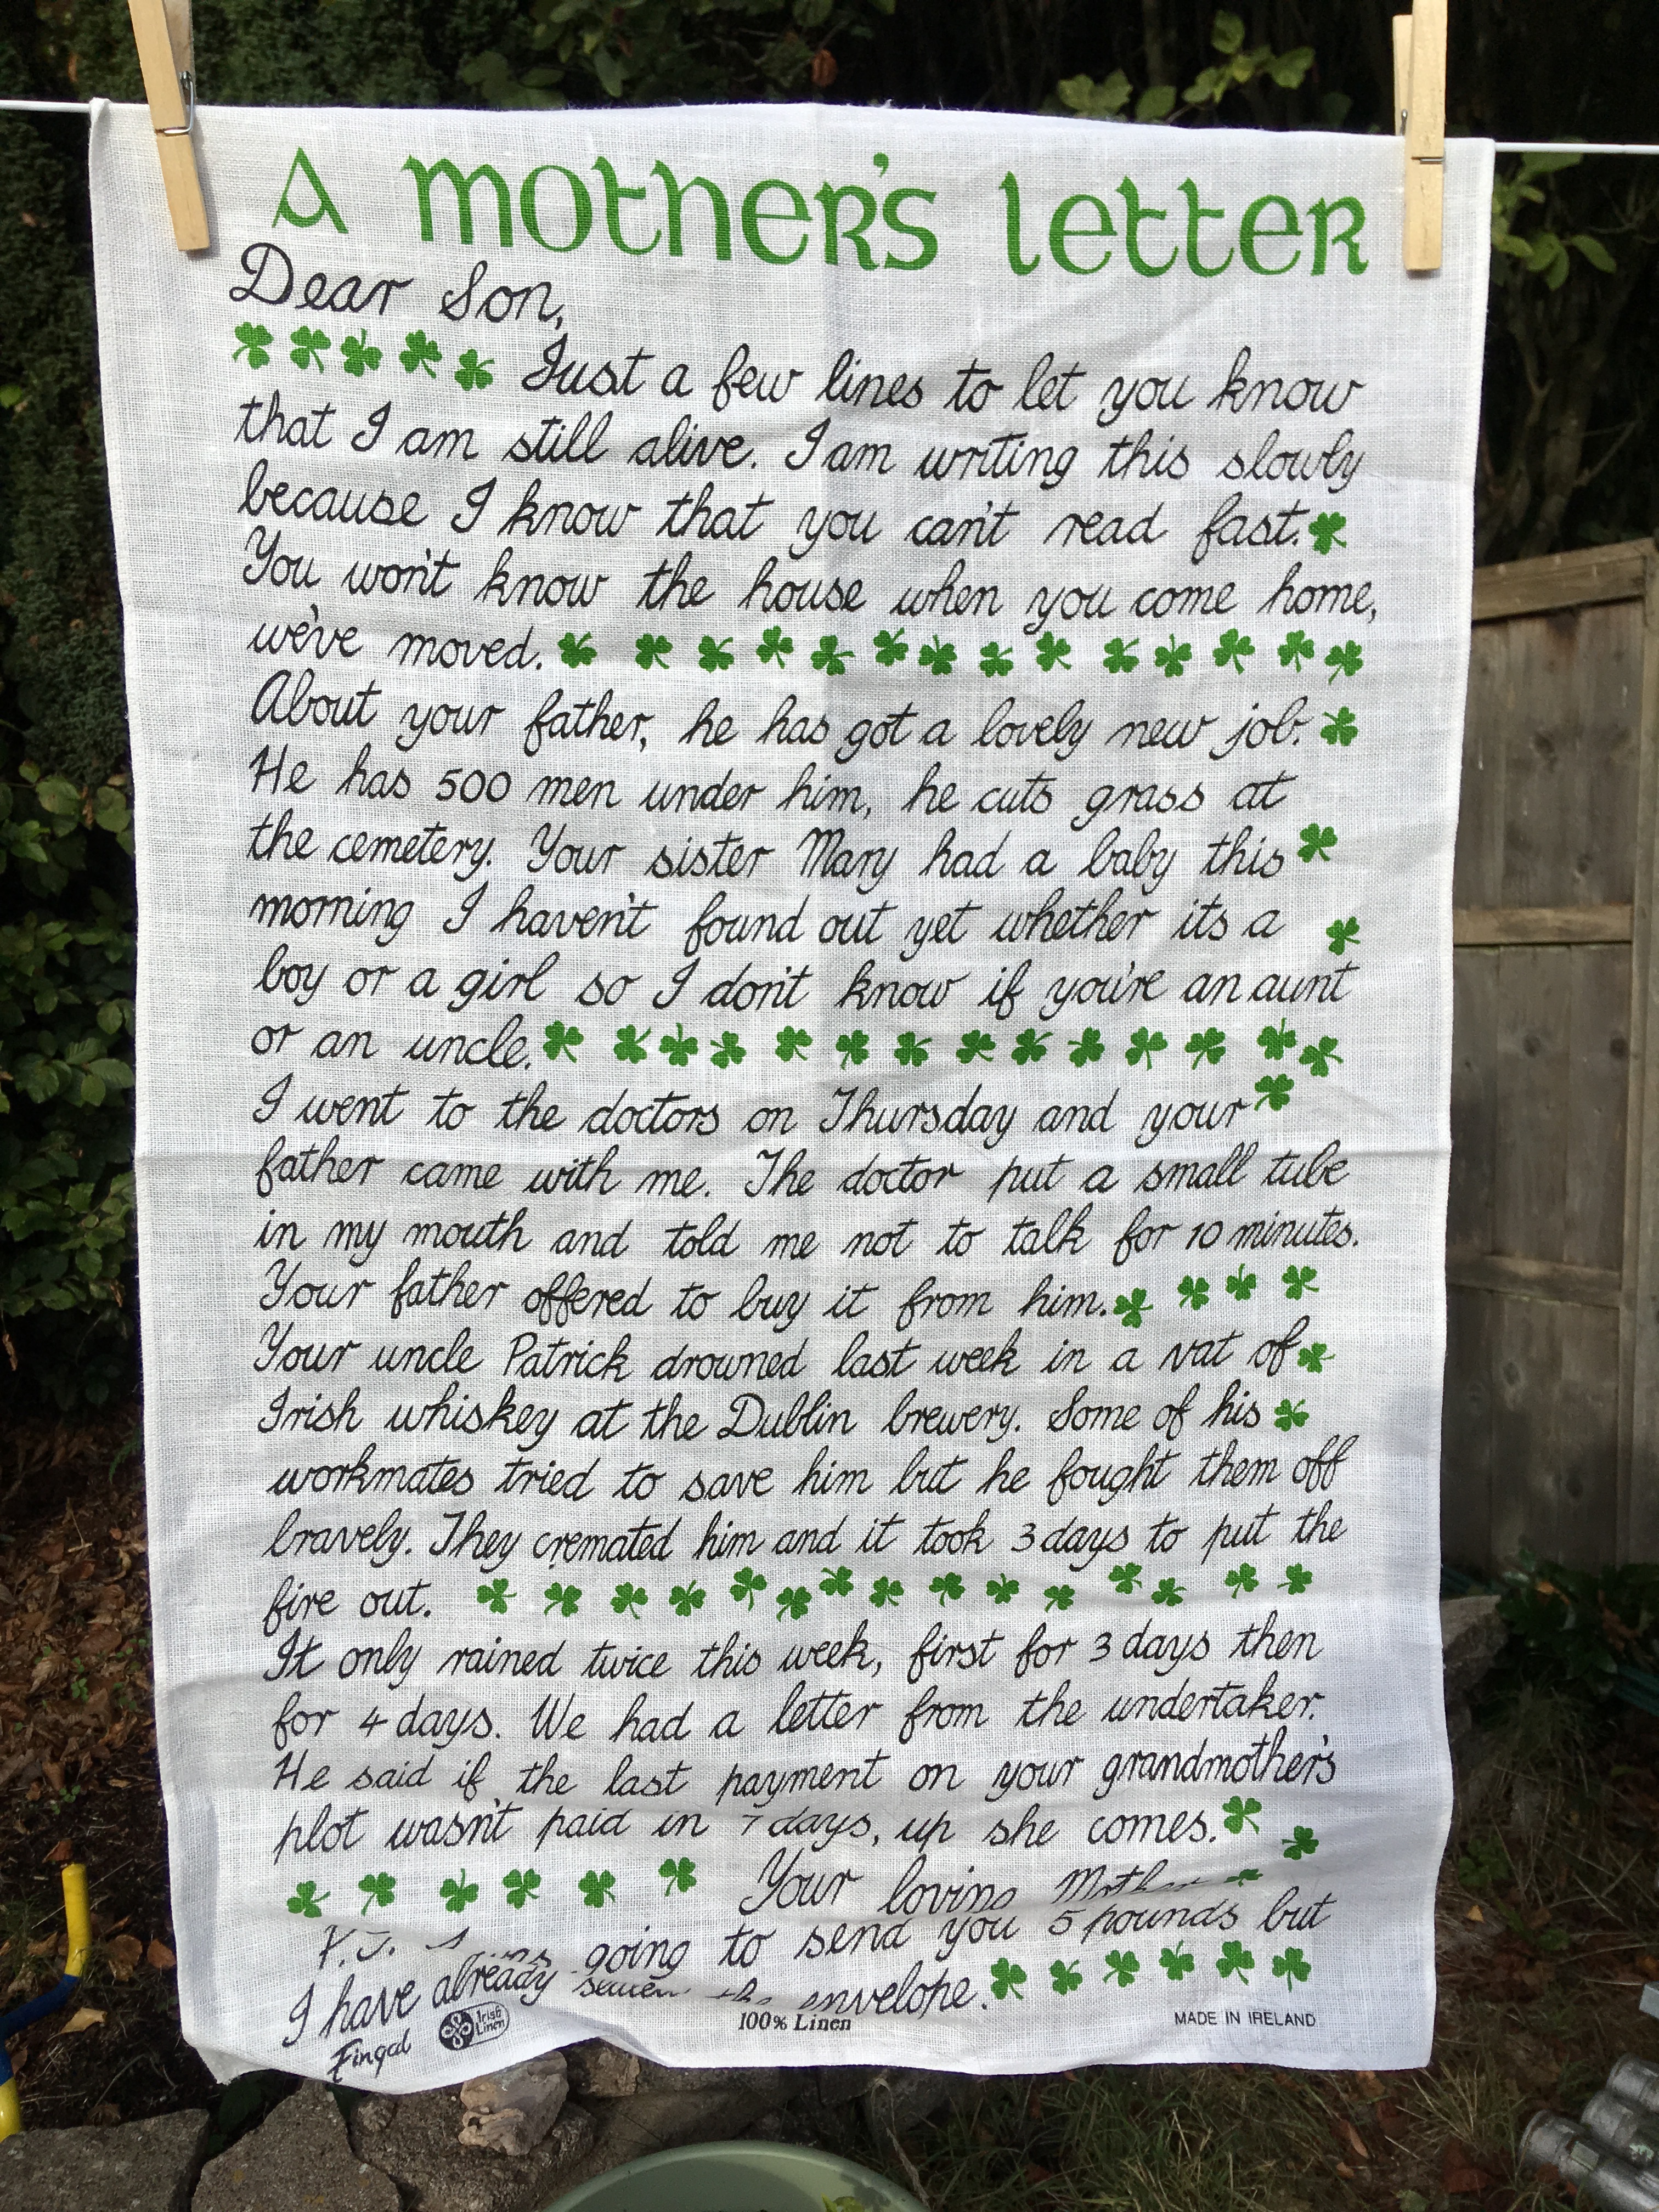 A mother's letter
Dear Son,
Just a few lines to let you know
that I am still alive. I am writing this slowly
because I know that you can't read fast.
You won't know the house when you come home,
we've moved.
About your father, he has got a lovely new job.
He has 500 men under him, he cuts grass at
the cemetery. Your sister Mary had a baby this
morning I haven't found out yet whether its a
boy or a girl so I don't know if you're an aunt
or an uncle.
I went to the doctors on Thursday and your
father came with me. The doctor put a small tube
in my mouth and told me not to talk for 10 minutes.
Your father offered to buy it from him.
Your uncle Patrick drowned last week in a vat of
Irish whiskey at the Dublin brewery. Some of his
workmates tried to save him but he fought them off
bravely. They cremated him and it took 3 days to put the
fire out.
It only rained twice this week, first for 3 days then
for 4 days. We had a letter from the undertaker.
He said if the last payment on your grandmother's
plot wasn't paid in 7 days, up she comes.
Your loving Mother
going to send you 5 pounds but
I have already the envelope.
Fingal
Irish Linen
100% Linen
MADE IN IRELAND